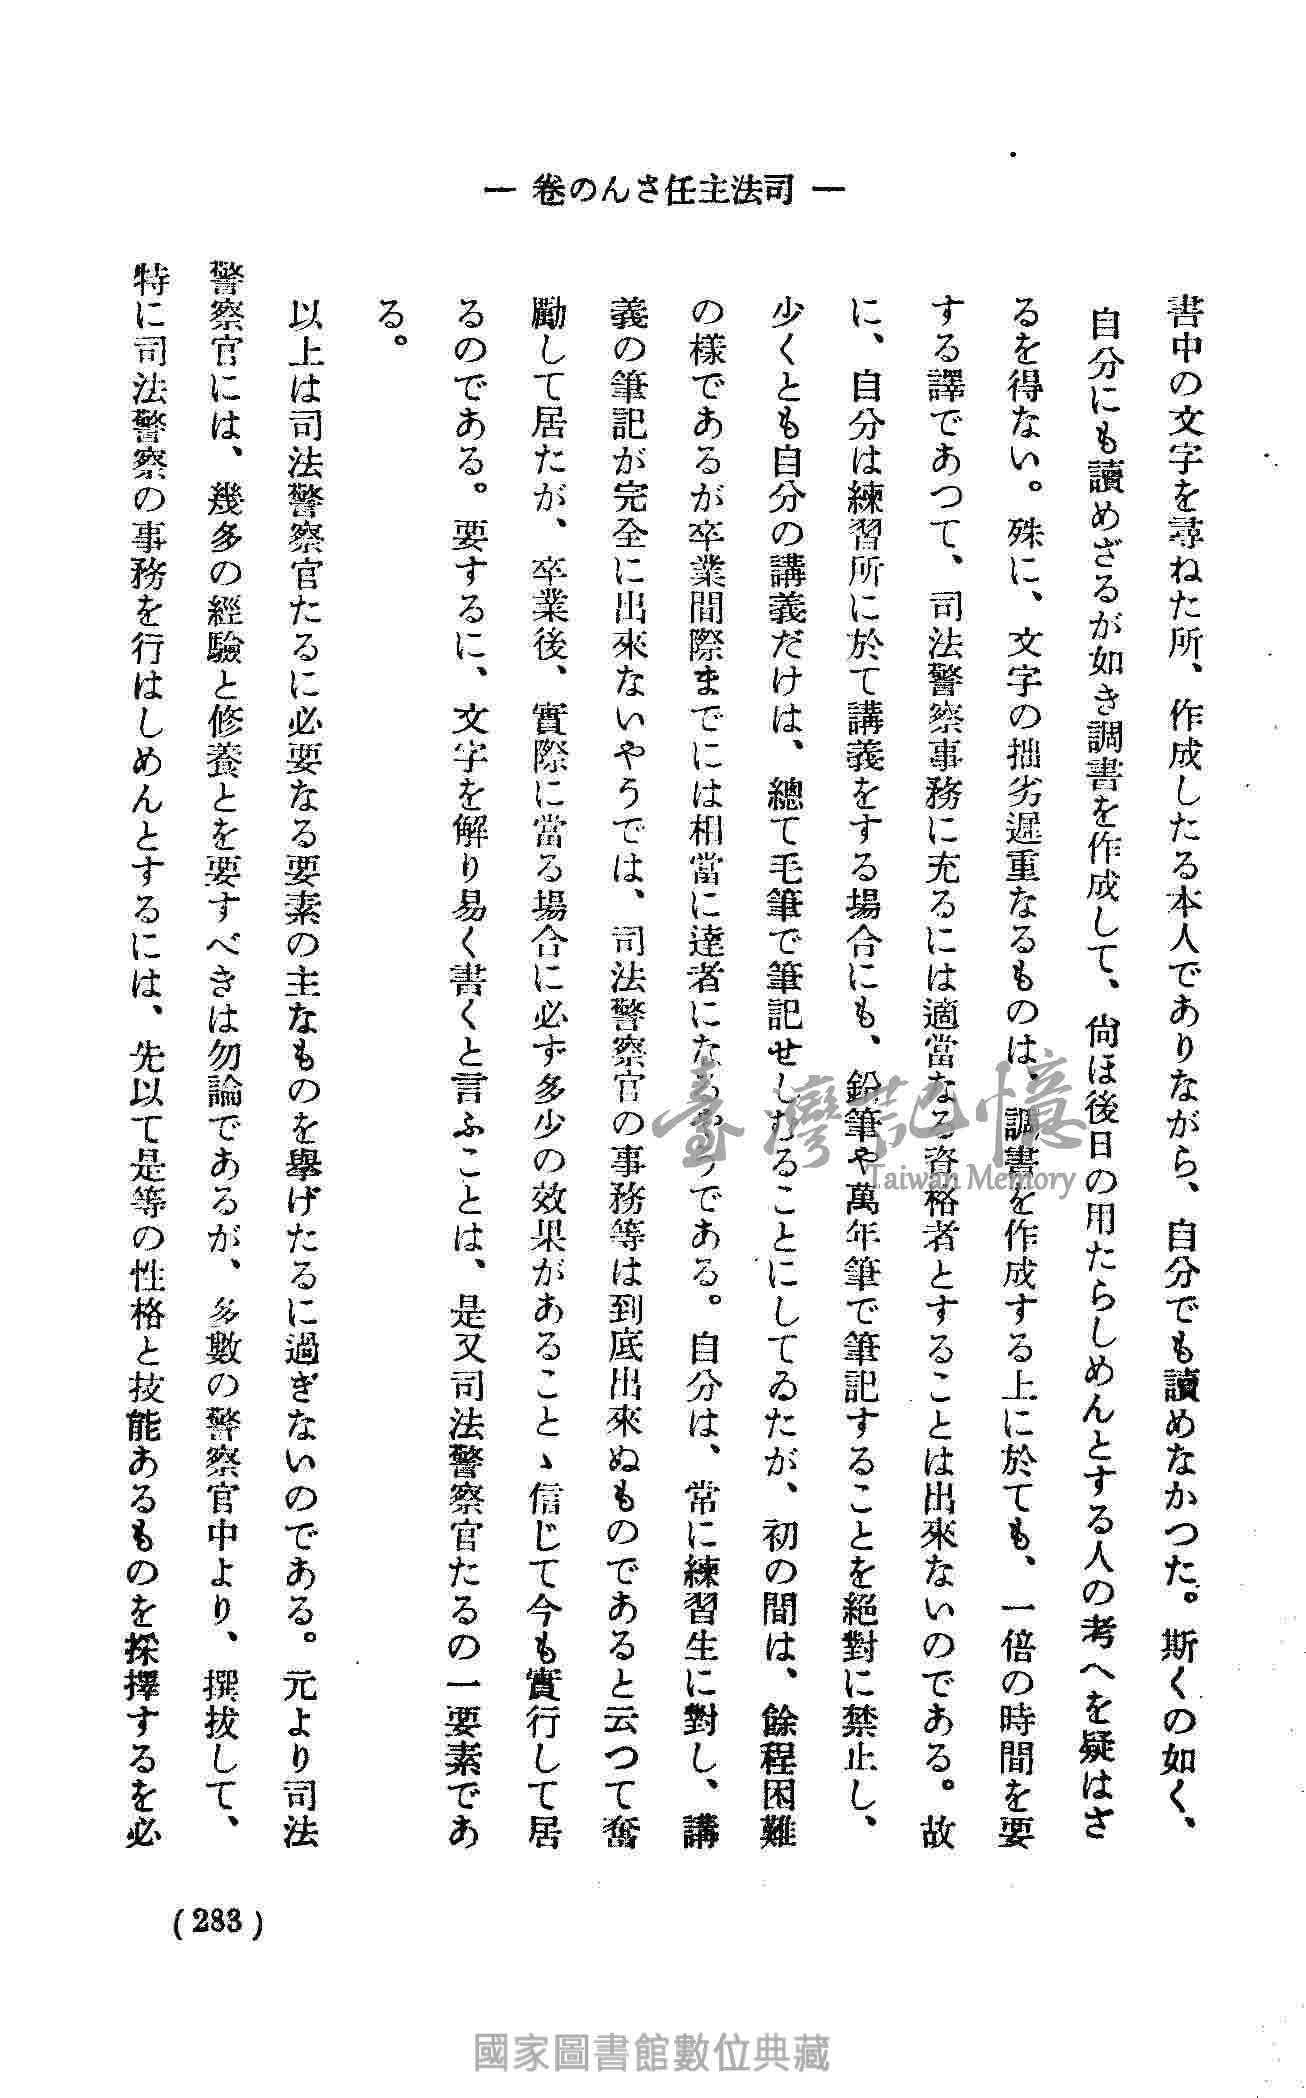 ― 司法主任さんの卷 ―
書中の文字を尋ねた所、作成したる本人でありながら、自分でも讀めなかつた。斯くの如く、
自分にも讀めざるが如き調書を作成して、尙ほ後日の用たらしめんとする人の考へを疑はさ
るを得ない。殊に、文字の拙劣遲重なるものは、調書を作成する上に於ても、一倍の時間を要
する譯であつて、司法警察事務に充るには適當なる資格者とすることは出來ないのである。故
に、自分は練習所に於て講義をする場合にも、鉛筆や萬年筆で筆記することを絕對に禁止し、
少くとも自分の講義だけは、總て毛筆で筆記せしむることにしてゐたが、初の間は、餘程困難
の樣であるが卒業間際までには相當に達者になるやうである。自分は、常に練習生に對し、講
義の筆記が完全に出來ないやうでは、司法警察官の事務等は到底出來ぬものであると云つて奮
勵して居たが、卒業後、實際に當る場合に必ず多少の效果があることゝ信じて今も實行して居
るのである。要するに、文字を解り易く書くと言ふことは、是又司法警察官たるの一要素であ
る。
以上は司法警察官たるに必要なる要素の主なものを擧げたるに過ぎないのである。元より司法
警察官には、幾多の經驗と修養とを要すべきは勿論であるが、多數の警察官中より、撰拔して、
特に司法警察の事務を行はしめんとするには、先以て是等の性格と技能あるものを採擇するを必
(283)
臺灣記憶
Taiwan Memory
國家圖書館數位典藏